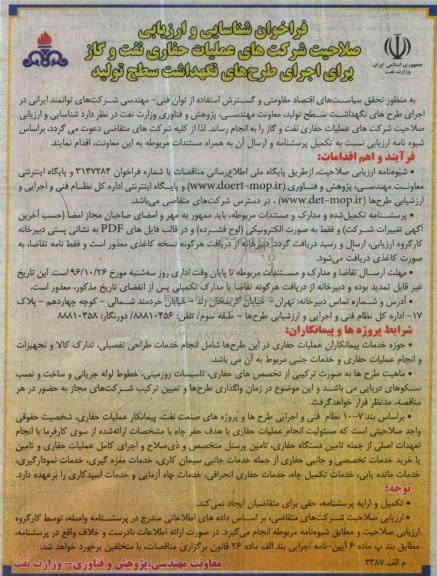 فراخوان شناسایی و ارزیابی
صلاحیت شرکت های عملیات حفاری نفت و گاز
برای اجرای طرح‌های نگهداشت سطح تولید
جمهوری اسلامی ایران
وزارت نفت
به منظور تحقق سیاست‌های اقتصاد مقاومتی و گسترش استفاده از توان فنی- مهندسی شرکت‌های توانمند ایرانی در
اجرای طرح های نگهداشت سطح تولید، معاونت مهندسی، پژوهش و فناوری وزارت نفت در نظر دارد شناسایی و ارزیابی
صلاحیت شرکت های عملیات حفاری نفت و گاز را به انجام رساند. لذا از کلیه شرکت های متقاضی دعوت می گردد، براساس
شیوه نامه ارزیابی نسبت به تکمیل پرسشنامه و ارسال آن به همراه مستندات مربوطه به این معاونت، اقدام نمایند.
فرآیند و اهم اقدامات:
• شیوه‌نامه ارزیابی صلاحیت، ازطریق پایگاه ملی اطلاع‌رسانی مناقصات با شماره فراخوان ۳۱۴۷۲۸۴ و پایگاه اینترنتی
معاونت مهندسی، پژوهش و فناوری (www.doert-mop.ir) و پایگاه اینترنتی اداره کل نظام فنی و اجرایی و
ارزشیابی طرح‌ها (www.det-mop.ir) ، در دسترس شرکت‌های متقاضی می‌باشد.
• پرسشنامه تکمیل‌شده و مدارک و مستندات مربوطه، باید ممهور به مهر و امضای صاحبان مجاز امضا (حسب آخرین
آگهی تغییرات شرکت) و فقط به صورت الکترونیکی (لوح فشرده) و در قالب فایل های PDF به نشانی پستی دبیرخانه
کارگروه ارزیابی، ارسال و رسید دریافت گردد. دبیرخانه از دریافت هرگونه نسخه کاغذی معذور است و فقط نامه تقاضا، به
صورت کاغذی دریافت می‌شود.
• مهلت ارسال تقاضا و مدارک و مستندات مربوطه تا پایان وقت اداری روز سه‌شنبه مورخ ۹۶/۱۰/۲۶ است. این تاریخ
غیر قابل تمدید بوده و دبیرخانه از دریافت هرگونه تقاضا یا مدارک تکمیلی پس از انقضای تاریخ مذکور، معذور است.
• آدرس و شماره تماس دبیرخانه: تهران- خیابان کریمخان زند – خیابان خردمند شمالی – کوچه چهاردهم – پلاک
۱۷- اداره کل نظام فنی و اجرایی و ارزشیابی طرح‌ها – طبقه سوم/ تلفن: ۸۸۸۱۰۴۵۶/ دورنگار: ۸۸۸۱۰۴۵۸
شرایط پروژه ها و پیمانکاران:
• حوزه خدمات پیمانکاران عملیات حفاری در این طرح‌ها شامل انجام خدمات طراحی تفصیلی، تدارک کالا و تجهیزات
و انجام عملیات حفاری و خدمات جنبی مربوط به آن می باشد.
• ماهیت طرح ها به صورت ترکیبی از تخصص های حفاری، تاسیسات روزمینی، خطوط لوله جریانی و ساخت و نصب
سکوهای دریایی می باشند و این موضوع در زمان واگذاری طرح‌ها و تعیین ترکیب شرکت‌های مجاز به حضور در هر
مناقصه، مدنظر قرار خواهدگرفت.
• براساس بند ۷-۱۰ نظام فنی و اجرایی طرح ها و پروژه های صنعت نفت، پیمانکار عملیات حفاری، شخصیت حقوقی
واجد صلاحیتی است که مسئولیت انجام عملیات حفاری با هدف حفر چاه با مشخصات ارائه‌شده از سوی کارفرما با انجام
تعهدات اصلی از جمله تامین دستگاه حفاری، تامین پرسنل متخصص و ذی‌صلاح و اجرای کامل عملیات حفاری و تامین
یا خرید خدمات تخصصی و جانبی حفاری از جمله خدمات جانبی سیمان کاری، خدمات مغزه گیری، خدمات نمودارگیری،
خدمات مانده یابی، خدمات تکمیل چاه، خدمات حفاری انحرافی، خدمات چاه آزمایی و خدمات اسیدکاری را برعهده دارد.
توجه:
• تکمیل و ارایه پرسشنامه، حقی برای متقاضیان ایجاد نمی‌کند.
• ارزیابی صلاحیت شرکت‌های متقاضی، بر اساس داده های اطلاعاتی مندرج در پرسشنامه واصله، توسط کارگروه
ارزیابی صلاحیت و مطابق شیوه‌نامه مربوطه انجام می‌گیرد. در صورت ارائه اطلاعات نادرست و خلاف واقع در پرسشنامه،
مطابق بند پ ماده ۶ آیین-نامه اجرایی بند الف ماده ۲۶ قانون برگزاری مناقصات، با متخلفین برخورد خواهد شد.
م الف ۳۳۸۷
معاونت مهندسی،پژوهش و فناوری- وزارت نفت